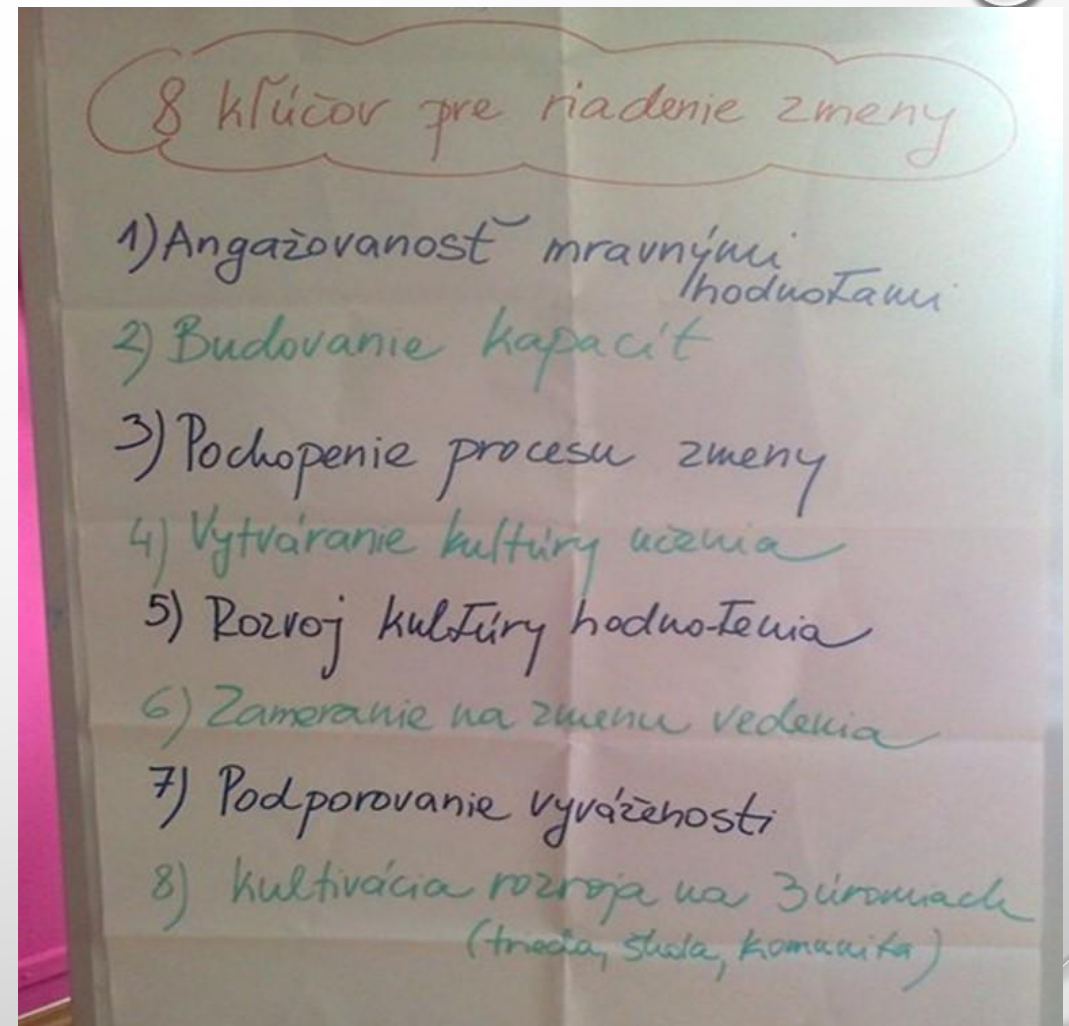 8 kľúčov pre riadenie zmeny
1) Angažovanosť mravnými
hodnotami
2) Budovanie kapacít
3) Pochopenie procesu zmeny
4) Vytváranie kultúry učenia
5) Rozvoj kultúry hodnotenia
6) Zameranie na zmenu vedenia
7) Podporovanie vyváženosti
8) kultivácia rozvoja na 3 úrovniach
(trieda, škola, komunita)